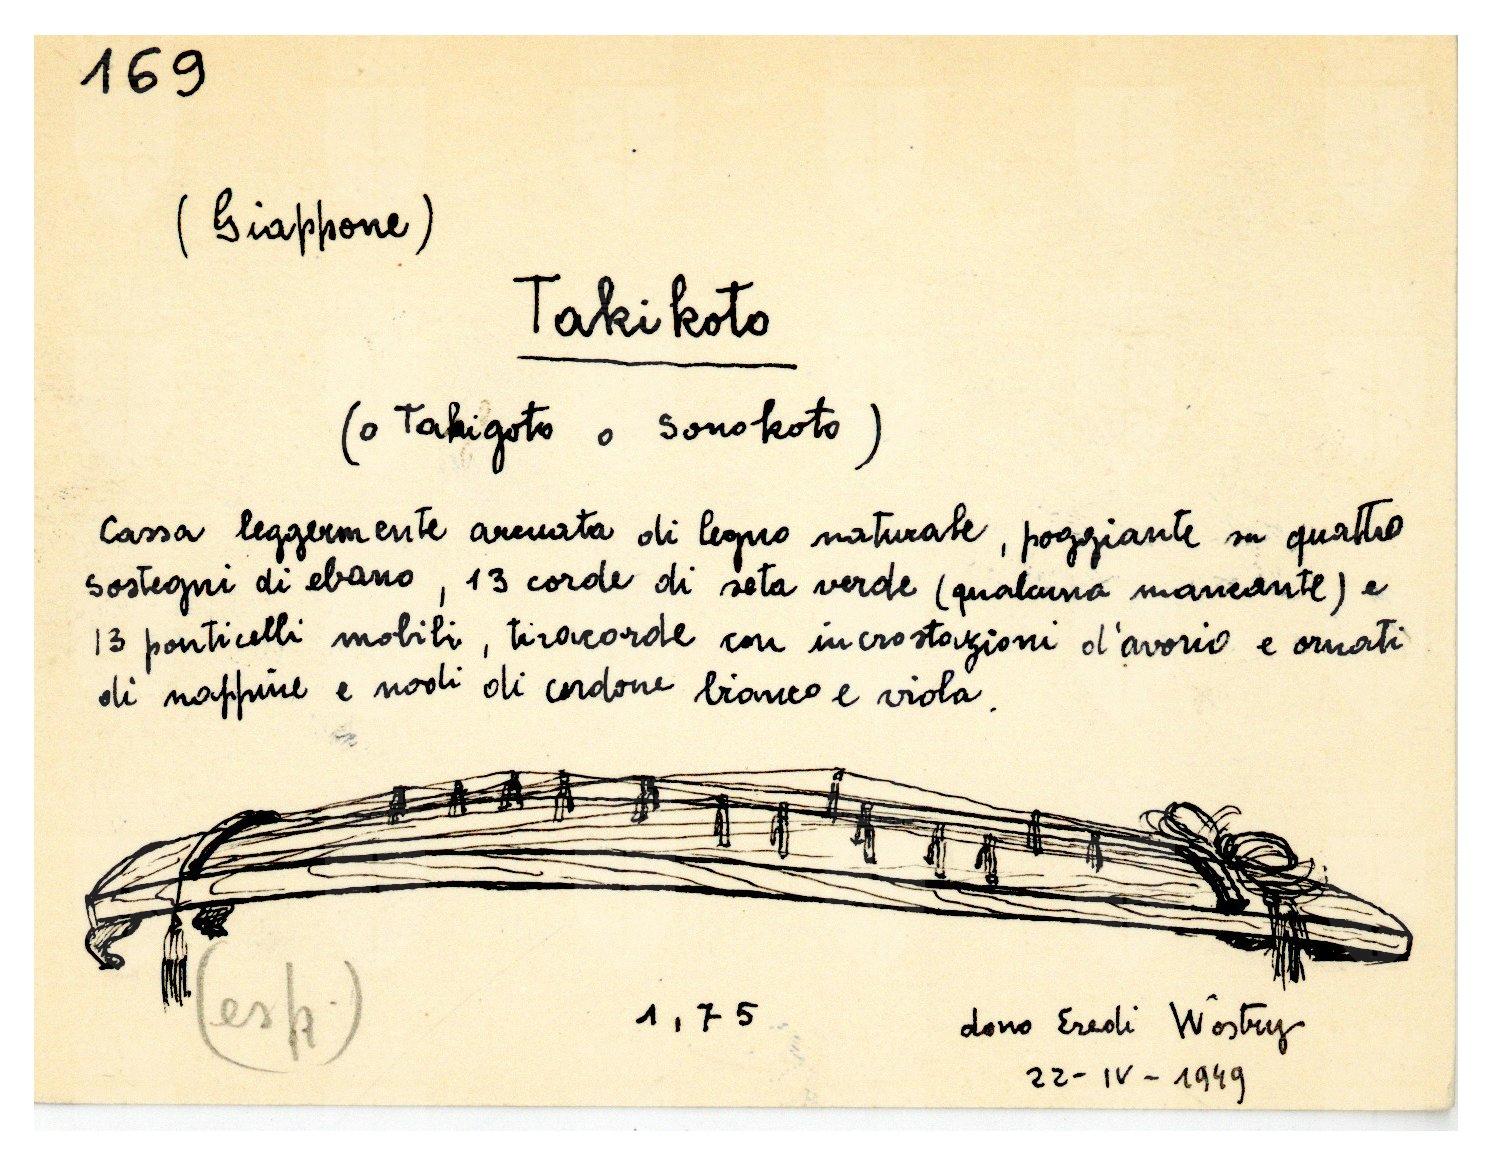 169
(Giappone)
Takikoto
(o Takigoto o Sonokoto)
Cassa leggermente arcuata di legno naturale, poggiante su quattro
sostegni di ebano, 13 corde di seta verde (qualcuna mancante) e
13 ponticelli mobili, tiracorde con incrostazioni d'avorio e ornati
di nappine e nodi di cordone bianco e viola.
(esp.)
1,75
dono Eredi Wostry
22-IV-1949